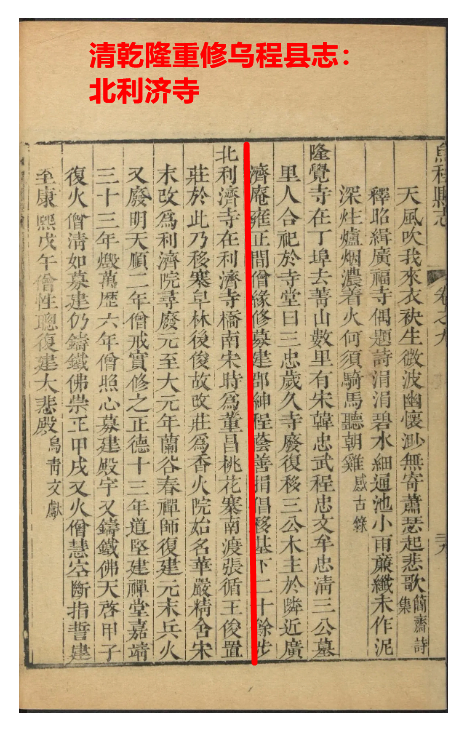 清乾隆重修乌程县志：
北利济寺
烏程縣志 卷之九
天風吹我來衣袂生微波幽懷渺無寄蕭瑟起悲歌 蘭齋詩集
釋昭緝廣福寺偶題詩涓涓碧水細通池小雨簾纖未作泥
深炷爐烟濃着火何須騎馬聽朝雞 感古錄
隆覺寺在丁埠去菁山數里有宋韓忠武程忠文牟忠清三公墓
里人合祀於寺堂曰三忠歲久寺廢復移三公木主於隣近廣
濟庵雍正間僧緣修募建郡紳程蔭善捐倡移基下二十餘步
北利濟寺在利濟寺橋南宋時為董昌桃花寨南渡張循王俊置
莊於此乃移寨阜林後俊故改莊為香火院始名華嚴精舍宋
末改為利濟院尋廢元至大元年蘭谷春禪師復建元末兵火
又廢明天順二年僧戒寶修之正德十三年道堅建禪堂嘉靖
三十三年燬萬歷六年僧照心募建殿宇又鑄鐵佛天啓甲子
復火僧清如募建仍鑄鐵佛崇正甲戌又火僧慧空斷指誓建
至康熙戊午僧性聰復建大悲殿 烏青文獻